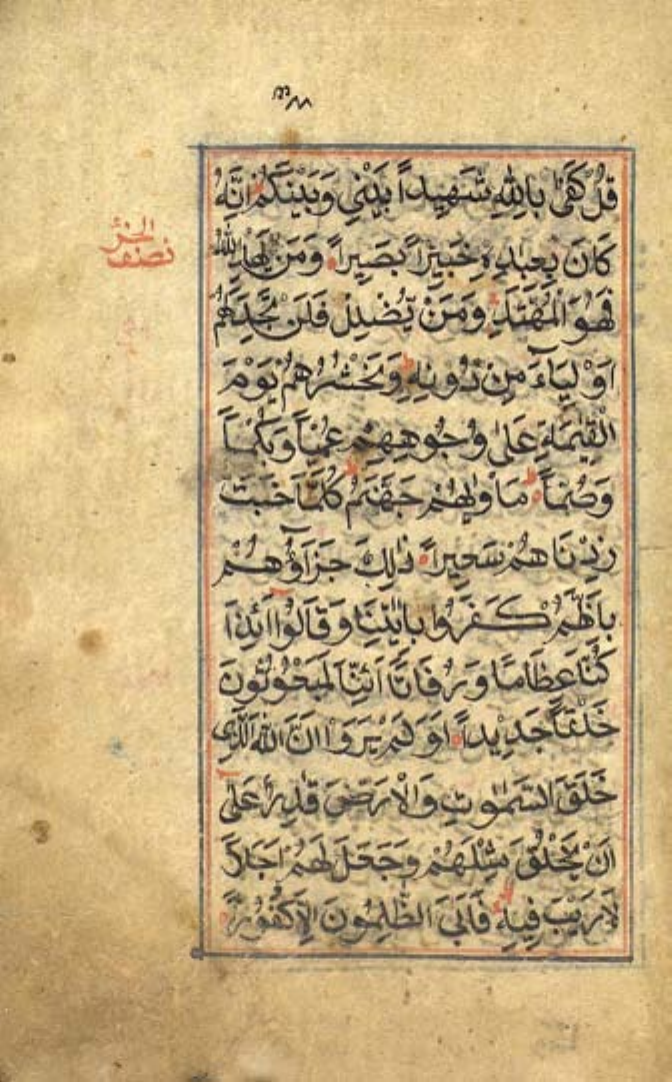 قُلْ كَفٰى بِاللّٰهِ شَهِيْداً بَيْنِيْ وَبَيْنَكُمْ اِنَّهُ
كَانَ بِعِبَادِهِ خَبِيْراً بَصِيْراً وَمَنْ يَهْدِ اللّٰهُ
فَهُوَ الْمُهْتَدِ وَمَنْ يُضْلِلْ فَلَنْ تَجِدَ لَهُمْ
اَوْلِيَاءَ مِنْ دُوْنِهِ وَنَحْشُرُهُمْ يَوْمَ
الْقِيٰمَةِ عَلٰى وُجُوْهِهِمْ عُمْيًا وَبُكْمًا
وَصُمًّا مَاْوٰيهُمْ جَهَنَّمُ كُلَّمَا خَبَتْ
زِدْنَاهُمْ سَعِيْراً ذٰلِكَ جَزَآؤُهُمْ
بِاَنَّهُمْ كَفَرُوْا بِاٰيٰتِنَا وَقَالُوْا ائِذَا
كُنَّا عِظَامًا وَرُفَاتًا ائِنَّا لَمَبْعُوْثُوْنَ
خَلْقًا جَدِيْداً اَوَلَمْ يَرَوْا اَنَّ اللّٰهَ الَّذِيْ
خَلَقَ السَّمٰوٰتِ وَالْاَرْضَ قَادِرٌ عَلٰى
اَنْ يَخْلُقَ مِثْلَهُمْ وَجَعَلَ لَهُمْ اَجَلاً
لَارَيْبَ فِيْهِ فَاَبَى الظّٰلِمُوْنَ اِلَّا كُفُوْراً
نصف
الجزء